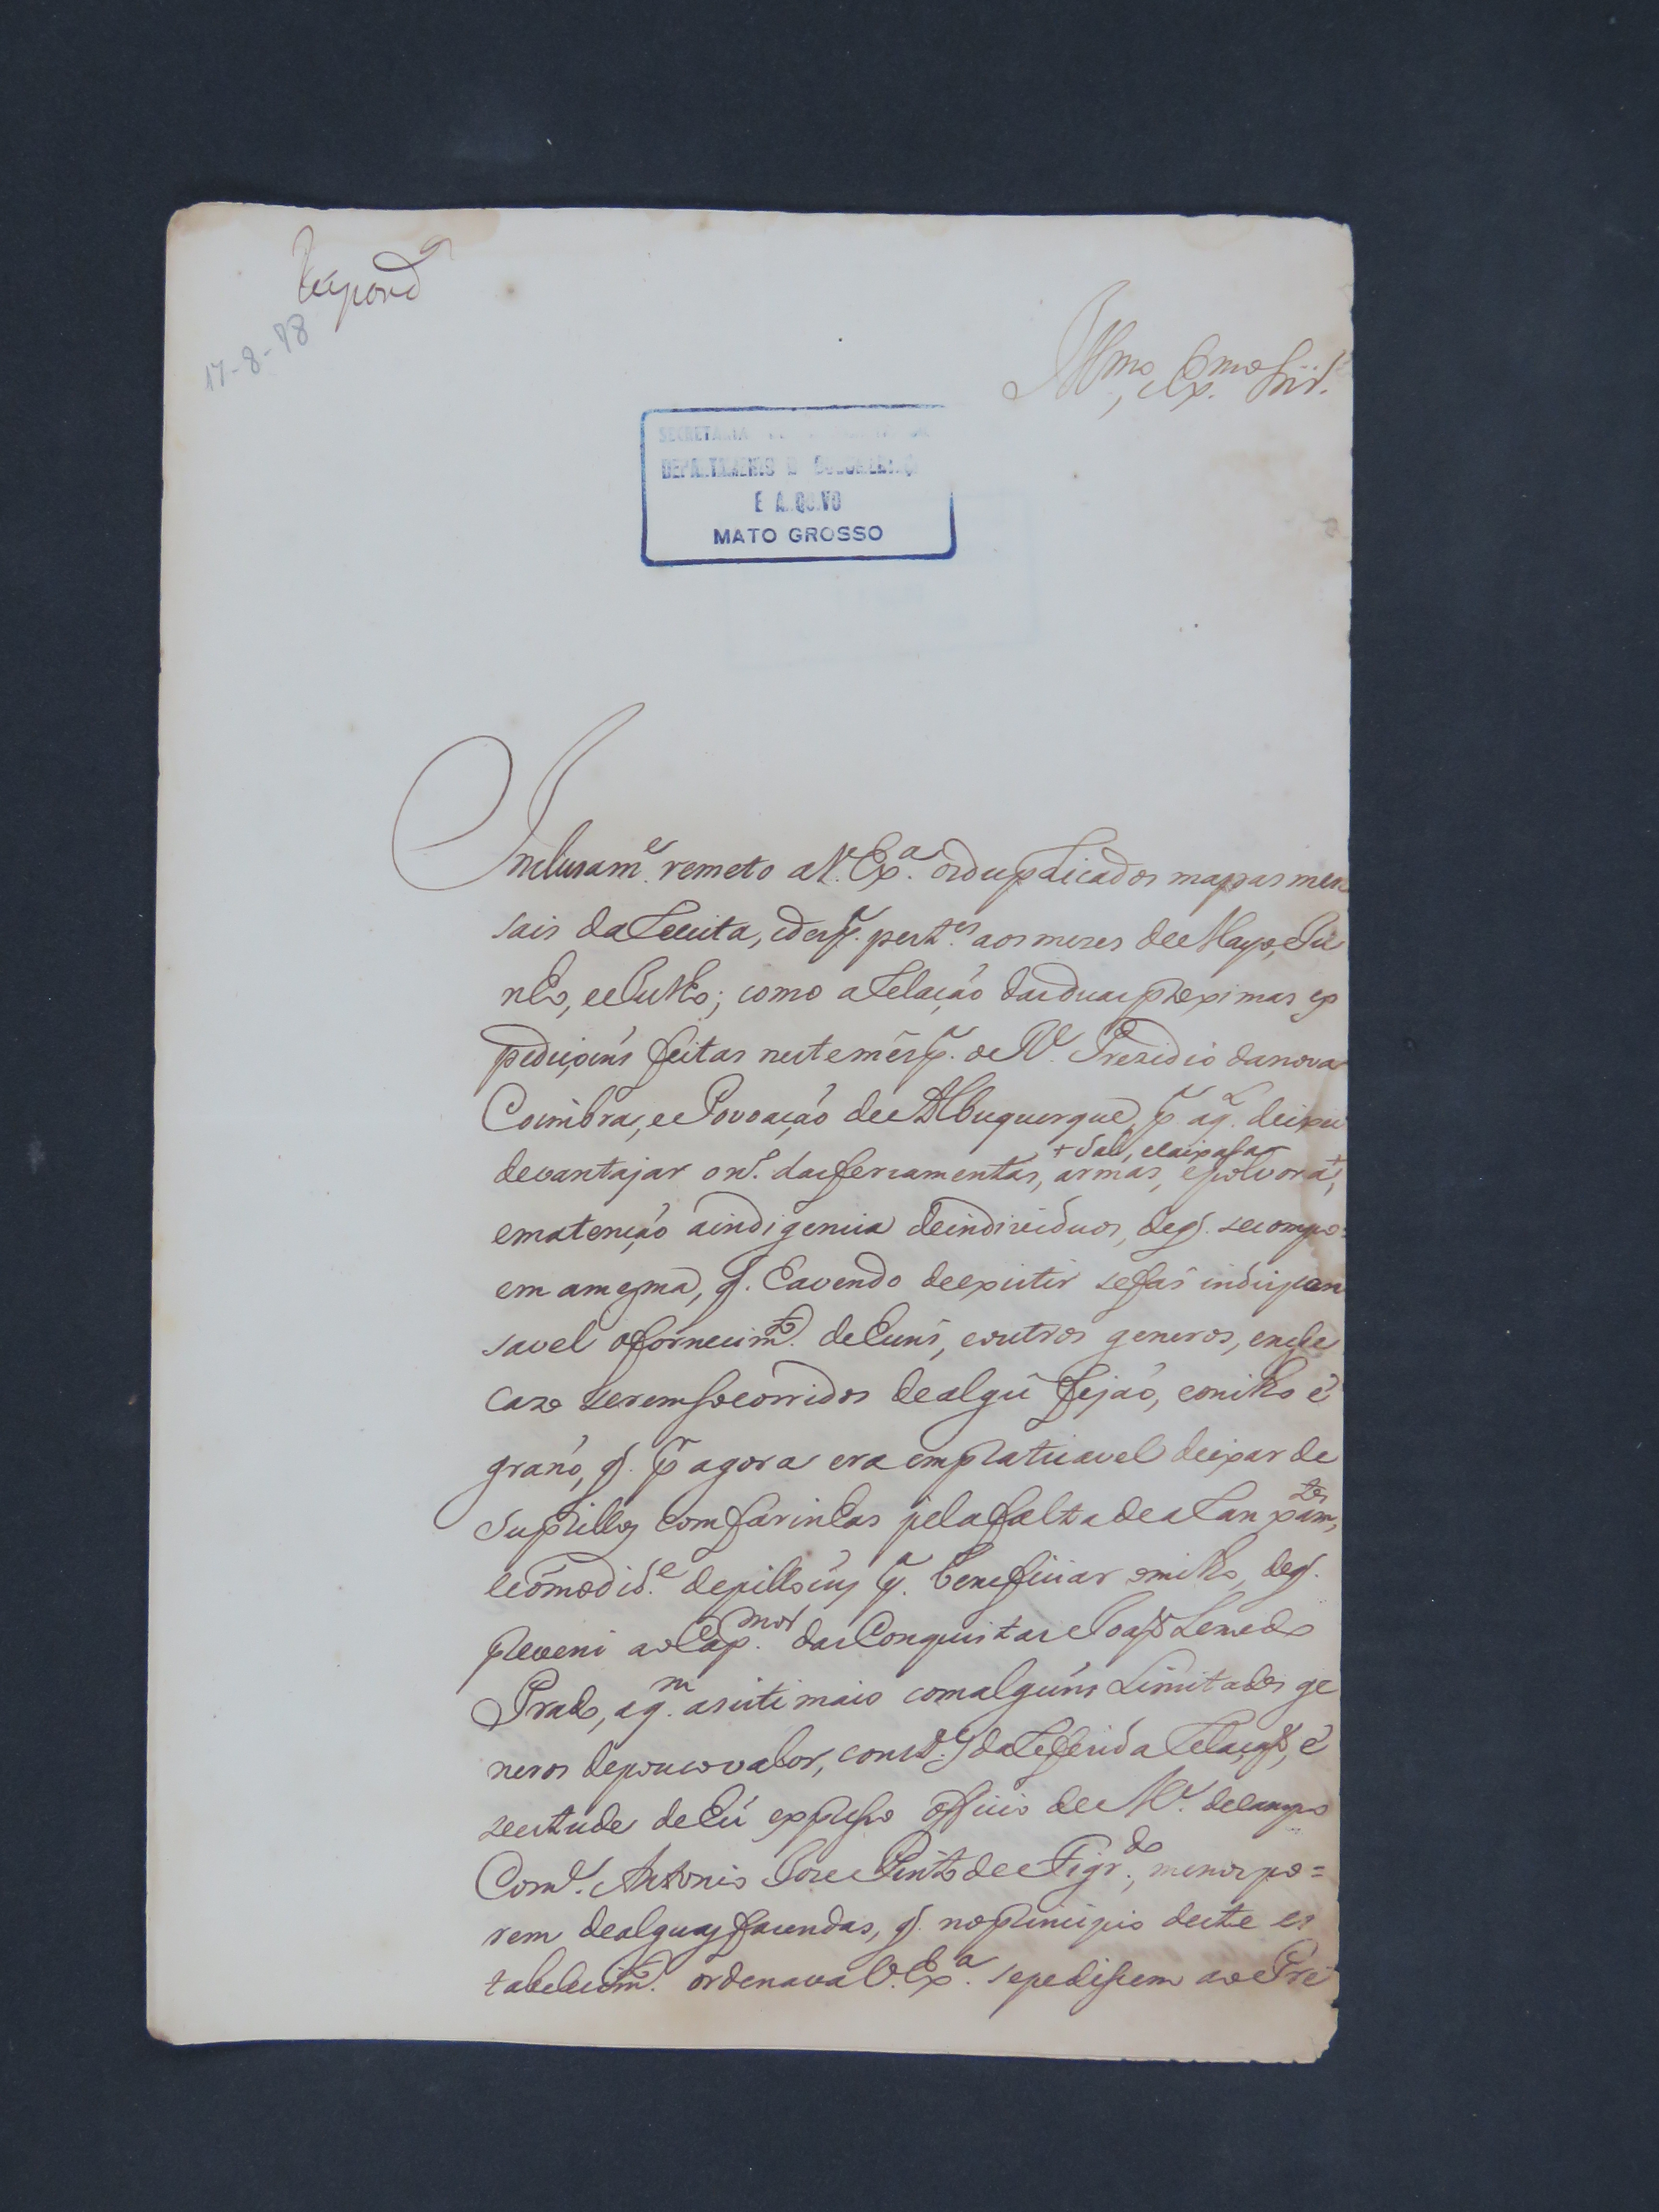 Respond.ª
17-8-98
Ill.mo, e Ex.mo Snr.
SECRETARIA
DEPARTAMENTO D DOCUMENTAÇ
E ARQUIVO
MATO GROSSO
Incluzam.e remeto a V. Ex.a os duplicados mappas men
sais da Receita, e desp. pert.es aos mezes de Mayo, Ju
nho, e Julho; como a Relação das duas proximas ex
pediçoins feitas neste mês p.a o R.l Prezidio da nova
Coimbra, e Povoação de Albuquerque, p.a aq.l deixei
+ Sal, e
de vantajar o n.o das ferramentas, armas, e polvora +,
em atenção a indigencia de individuos, de q. se compo=
em a mezma, q. havendo de existir se fas indispen
savel o fornecim.to de huns, e outros generos, e nese
cazo serem socorridos de algū feijaó, e milho ē
granó, q. p.r agora era empraticavel deixar de
suprillos com farinhas pela falta de
e cōmodid.e de pilloiñs p.a beneficiar o milho, de q.
preveni ao Cap.mor das Conquistas João Leme do
Prado, a q.m asisti mais com alguñs limitados ge
neros de pouco valor, const.es da referida Relação, ē
vertude de hū expreso officio de M.e de campo
Com.e Antonio Joze Pinto de Figr.do, menos po=
rem de alguas fazendas, q. no principio deste es
tabelecim.to ordenava V. Ex.a se pedisem ao Pre